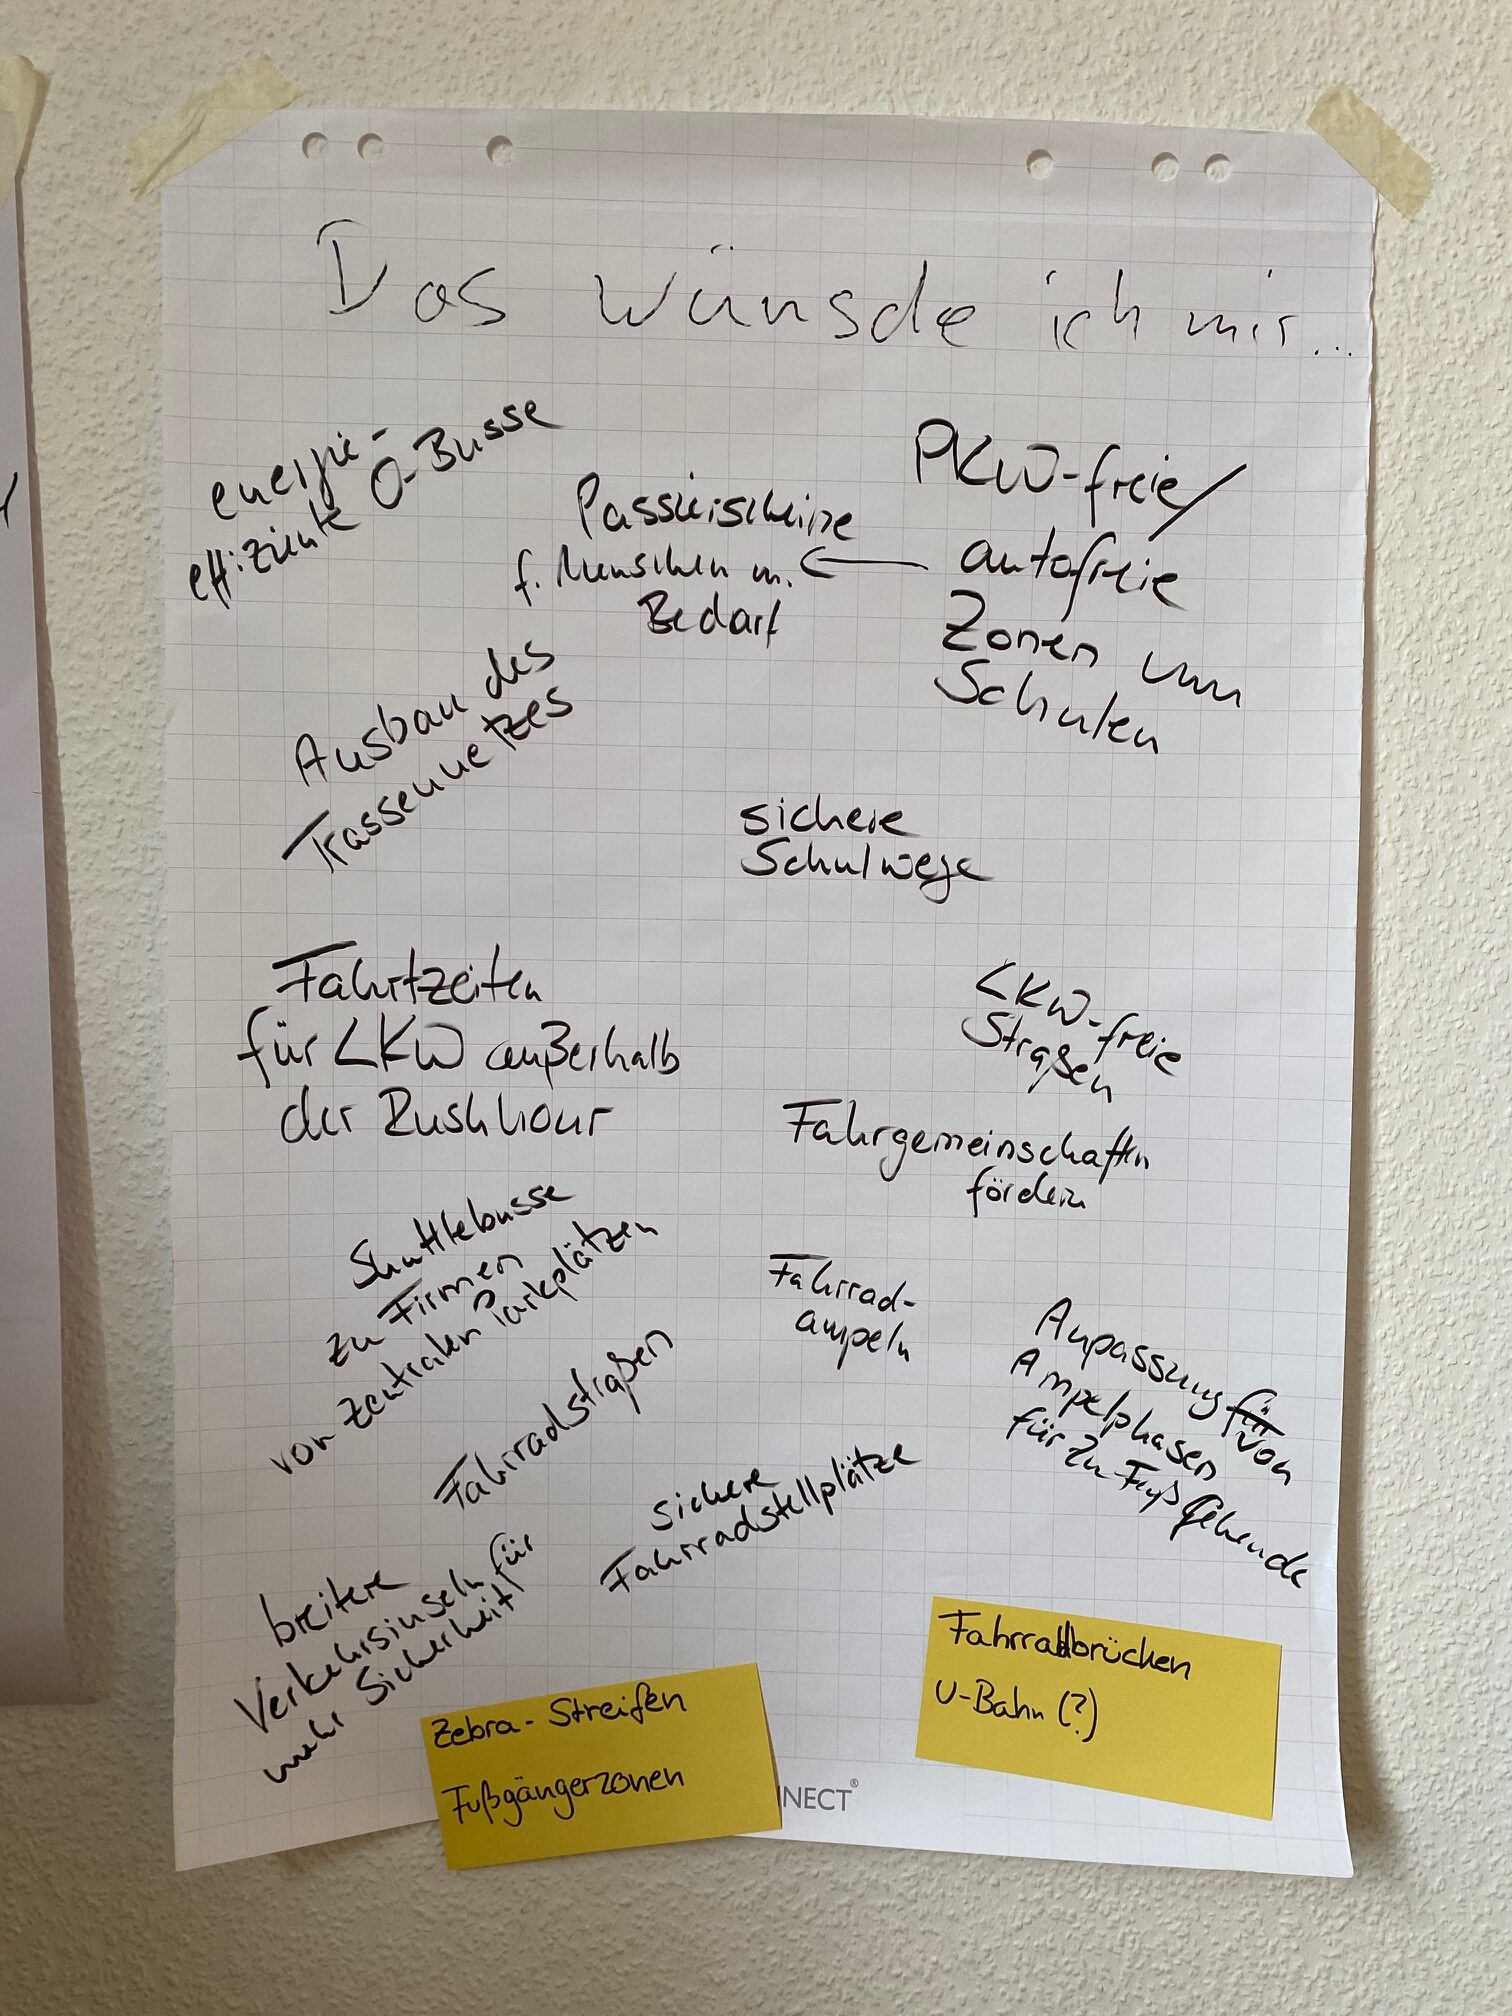 Das wünsche ich mir...
energie-
effiziente O-Busse
Passierscheine
f. Menschen m.
Bedarf
PKW-freie/
autofreie
Zonen um
Schulen
Ausbau des
Trassennetzes
sichere
Schulwege
Fahrtzeiten
für LKW außerhalb
der Rushhour
LKW-freie
Straßen
Fahrgemeinschaften
fördern
Shuttlebusse
zu Firmen
von zentralen Parkplätzen
Fahrrad-
ampeln
Anpassung für von
Ampelphasen
für zu Fuß Gehende
Fahrradstraßen
sichere
Fahrradstellplätze
breitere
Verkehrsinseln für
mehr Sicherheit
Zebra-Streifen
Fußgängerzonen
Fahrradbrücken
U-Bahn (?)
NECT®